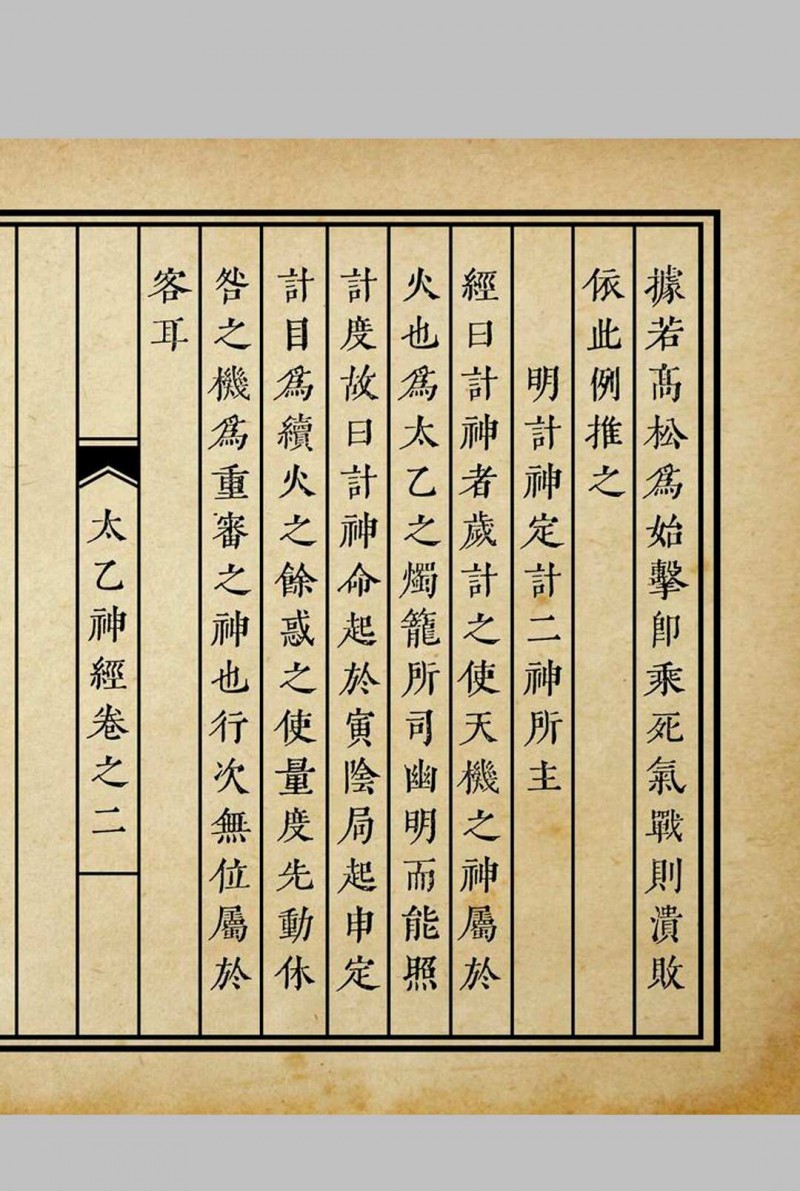 據若髙松爲始擊卽乘死氣戰則潰敗
依此例推之
明計神定計二神所主
經曰計神者歲計之使天機之神屬於
火也爲太乙之燭籠所司幽明而能照
計度故曰計神命起於寅陰局起申定
計目爲續火之餘惑之使量度先動休
咎之機爲重審之神也行次無位屬於
客耳
太乙神經卷之二